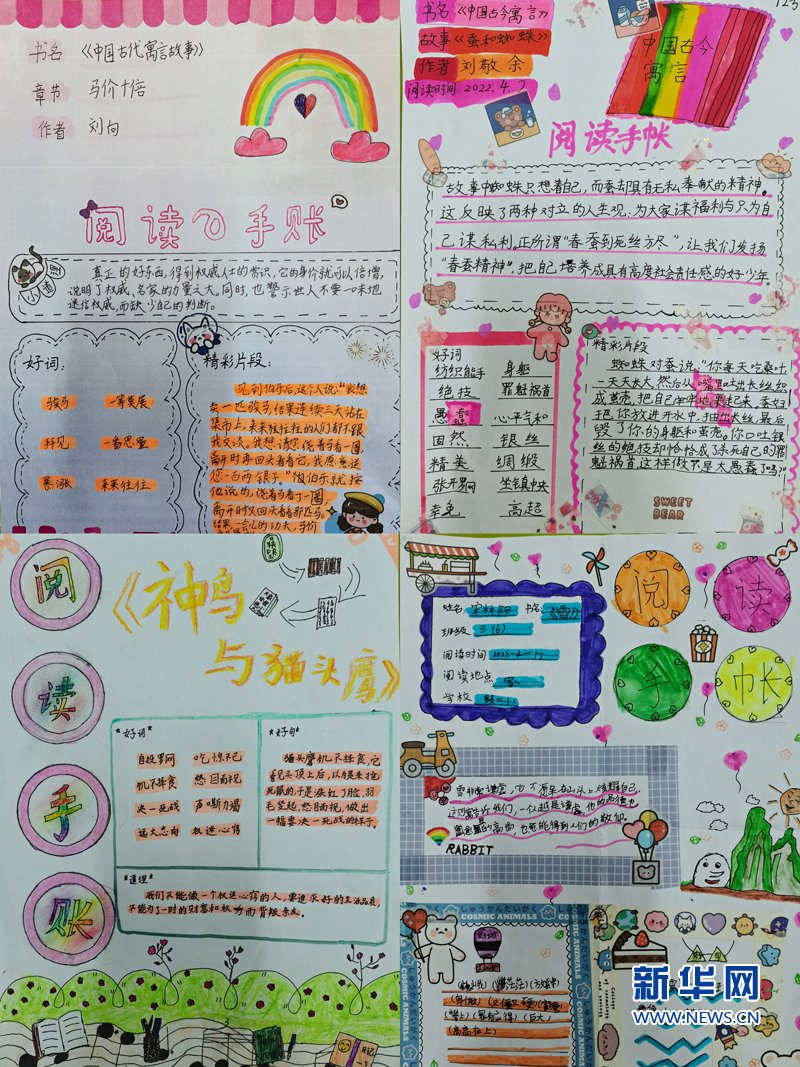 书名 《中国古代寓言故事》
章节 马价十倍
作者 刘向
阅读の手账
小道理
真正的好东西,得到权威人士的赏识,它的身价就可以倍增,
说明了权威、名家的力量之大。同时,也警示世人不要一味地
迷信权威,而缺少自己的判断。
好词:
骏马 一筹莫展
拜见 一番思量
暴涨 来来往往
精彩片段:
见到伯乐后,这个人说:"我想
卖一匹骏马,结果连续三天站在
集市上,来来往往的人们都不跟
我交谈。我想请您绕着马看一圈,
离开时再回头看看它,我愿意送
您一百两银子。"伯乐就按
他说的,绕着马看了一圈
离开时又回头看看那匹马。
结果一会儿的功夫,马价
书名《中国古今寓言》
故事《蚕和蜘蛛》
作者 刘敬余
阅读时间 2022.4.
中国古今
寓言
阅读手帐
故事中蜘蛛只想着自己,而蚕却具有无私奉献的精神。
这反映了两种对立的人生观,为大家谋福利与只为自
己谋私利。正所谓"春蚕到死丝方尽",让我们发扬
"春蚕精神",把自己培养成具有高度社会责任感的好少年。
好词
纺织能手 身躯
绝技 罪魁祸首
愚蠢 心平气和
固然 银丝
精美 绸缎
张开罗网 坐镇中央
幸免 高超
精彩片段
蜘蛛对蚕说:"你每天吃桑叶
一天天长大,然后从嘴里吐出长丝织
成茧壳,把自己牢牢地裹起来。蚕妇
把你放进开水中,抽出长丝,最后
毁了你的身躯和茧壳。你口吐银
丝的绝技却恰恰成了杀死自己的罪
魁祸首,这样做不是太愚蠢了吗?"
SWEET
BEAR
阅
读
手
账
《神鸟
与猫头鹰》
*好词*
自投罗网 吃惊不已
饥不择食 怒目而视
决一死战 声嘶力竭
远大志向 权迷心窍
*好句*
猫头鹰饥不择食,它
看见头顶上后,以为是来抢
死鼠的,于是涨红了脸,羽
毛竖起,怒目而视,做出
一幅要决一死战的样子。
*道理*
我们不能做一个权迷心窍的人,要追求好的生活品质,
不能为了一时的财富和权力而背叛亲友。
日记
姓名: 宋林阳 书名: 《雪》
班级 三(6)
阅读时间 2022
阅读地点 家
学校
阅
读
手
帐
雪非常谦虚,也不愿呆在山头上炫耀自己,
这则寓言告诉我们,一个人越是谦虚,他的品德也
就越显的高尚,也就能得到人们的敬仰。
RABBIT
しゅうかんたいがく
COSMIC ANIMALS
好词
好句
(高高在上)
COSMIC ANIMALS
COSMIC ANIMALS
新华网
WWW.NEWS.CN